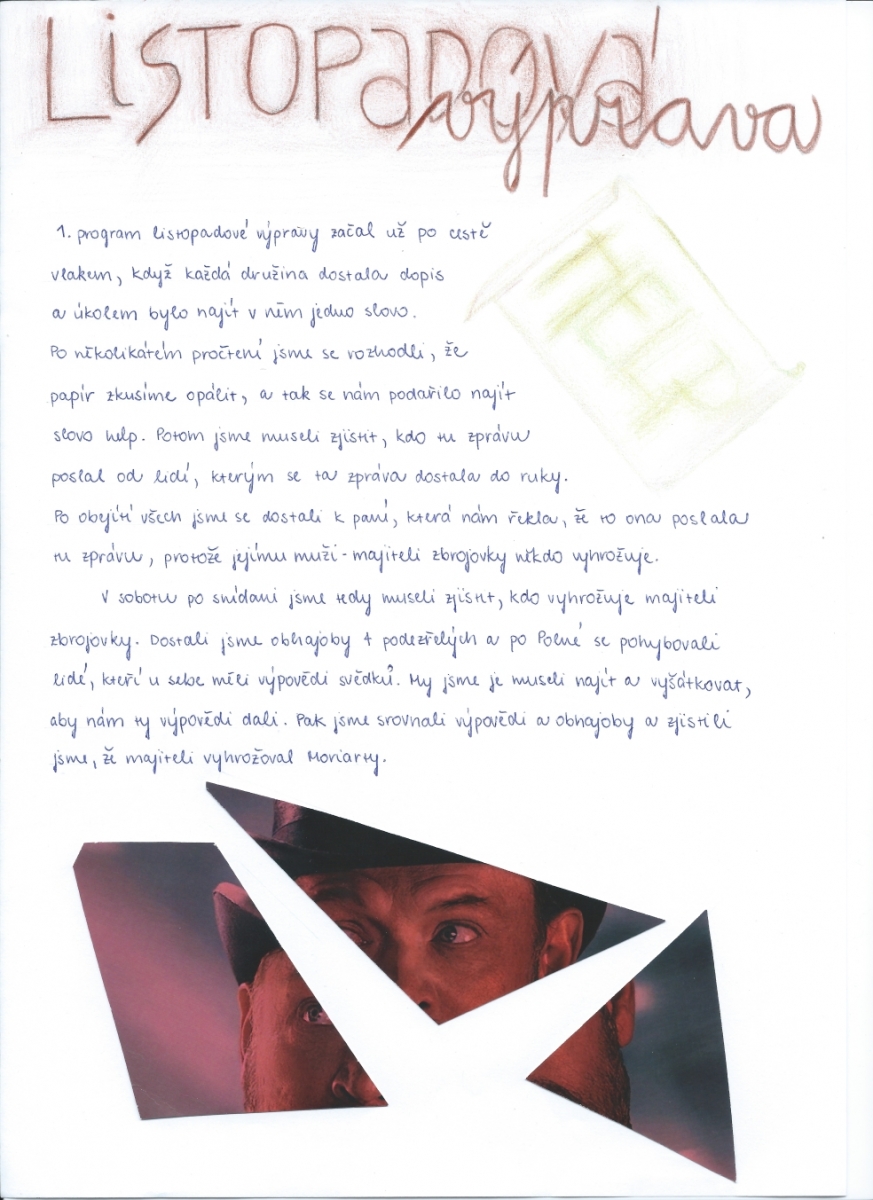 Listopadová
výprava
HELP
1. program listopadové výpravy začal už po cestě
vlakem, když každá družina dostala dopis
a úkolem bylo najít v něm jedno slovo.
Po několikátém pročtení jsme se rozhodli, že
papír zkusíme opálit, a tak se nám podařilo najít
slovo help. Potom jsme museli zjistit, kdo tu zprávu
poslal od lidí, kterým se ta zpráva dostala do ruky.
Po obejití všech jsme se dostali k paní, která nám řekla, že to ona poslala
tu zprávu, protože jejímu muži - majiteli zbrojovky někdo vyhrožuje.
V sobotu po snídani jsme tedy museli zjistit, kdo vyhrožuje majiteli
zbrojovky. Dostali jsme obhajoby 4 podezřelých a po Polné se pohybovali
lidé, kteří u sebe měli výpovědi svědků. My jsme je museli najít a vyšátkovat,
aby nám ty výpovědi dali. Pak jsme srovnali výpovědi a obhajoby a zjistili
jsme, že majiteli vyhrožoval Moriarty.